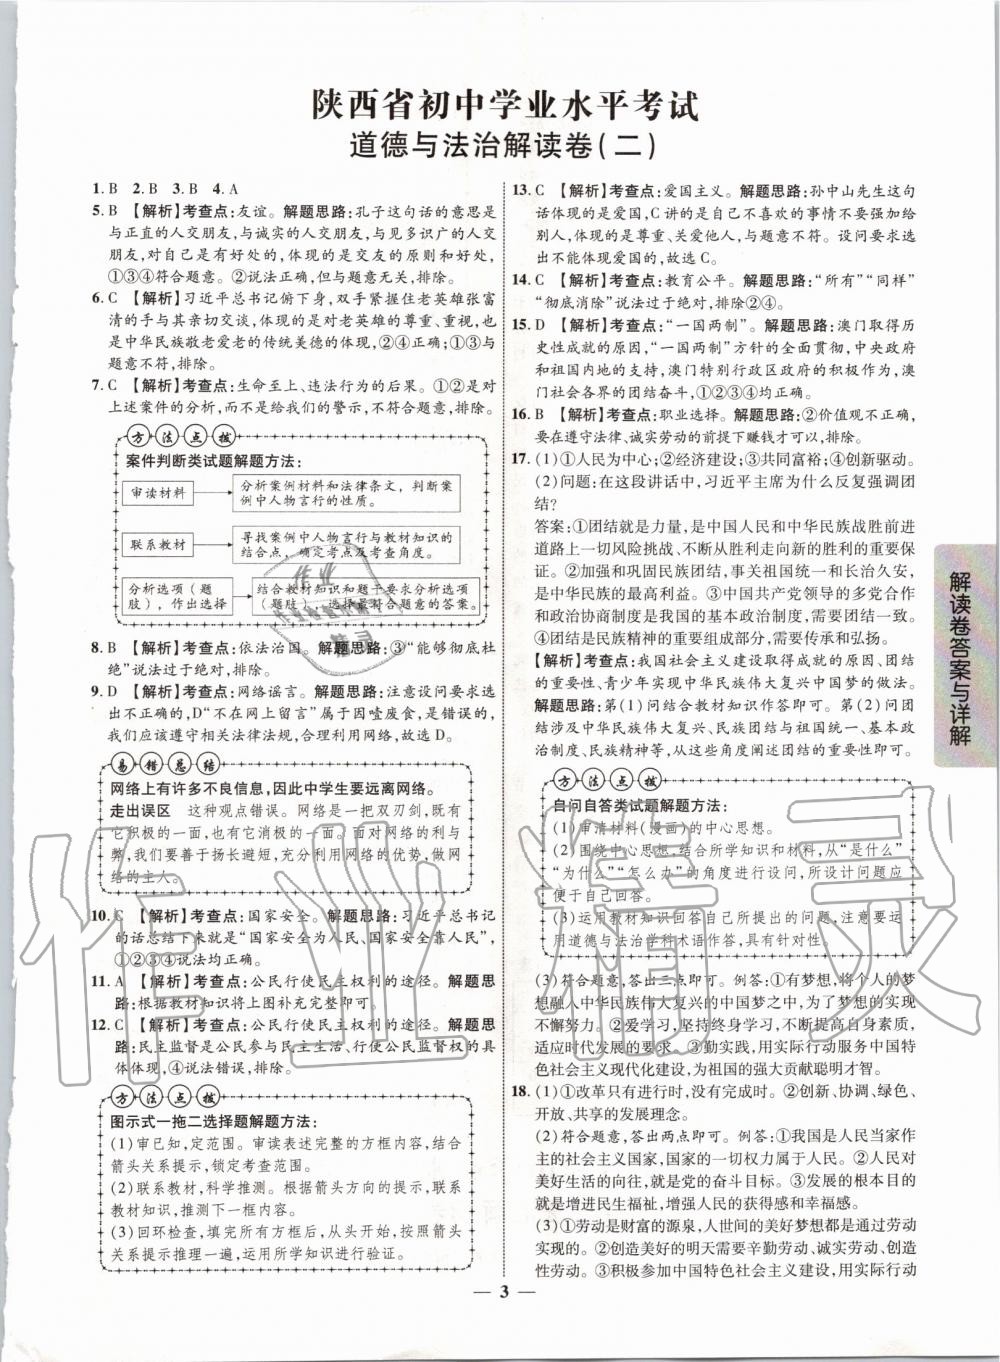 陕西省初中学业水平考试
道德与法治解读卷(二)
1. B 2. B 3. B 4. A
5. B 【解析】考查点:友谊。解题思路:孔子这句话的意思是
与正直的人交朋友,与诚实的人交朋友,与见多识广的人交
朋友,对自己是有好处的,体现的是交友的原则和智慧,
①③④符合题意。②说法正确,但与题意无关,排除。
6. C 【解析】习近平总书记俯下身,双手紧握住老英雄张富
清的手与其亲切交谈,体现的是对老英雄的尊重、重视,也
是中华民族敬老爱老的传统美德的体现,②④正确;①③与
题意不符,排除。
7. C 【解析】考查点:生命至上、违法行为的后果。①②是对
上述案件的分析,而不是给我们的警示,不符合题意,排除。
方法点拨
案件判断类试题解题方法:
审读材料
分析案例材料和法律条文,判断案
例中人物言行的性质。
联系教材
寻找案例中人物言行与教材知识的
结合点,确定考点及考查角度。
分析选项(题
肢),作出选择
结合教材知识和题干要求分析选项
(题肢),选择最符合题意的答案。
8. B 【解析】考查点:依法治国。解题思路:③“能够彻底杜
绝”说法过于绝对,排除。
9. D 【解析】考查点:网络谣言。解题思路:注意设问要求选
出不正确的,D“不在网上留言”属于因噎废食,是错误的,
我们应该遵守相关法律法规,合理利用网络,故选 D。
易错总结
网络上有许多不良信息,因此中学生要远离网络。
走出误区 这种观点错误。网络是一把双刃剑,既有
它积极的一面,也有它消极的一面。面对网络的利与
弊,我们要善于扬长避短,充分利用网络的优势,做网
络的主人。
10. C 【解析】考查点:国家安全。解题思路:习近平总书记
的话总结下来就是“国家安全为人民、国家安全靠人民”,
①②③④说法均正确。
11. A 【解析】考查点:公民行使民主权利的途径。解题思
路:根据教材知识将上图补充完整即可。
12. C 【解析】考查点:公民行使民主权利的途径。解题思
路:民主监督是公民参与民主生活、行使公民监督权的具
体体现,④说法错误,排除。
方法点拨
图示式一拖二选择题解题方法:
(1)审已知,定范围。审读表述完整的方框内容,结合
箭头关系提示,锁定考查范围。
(2)联系教材,科学推测。根据箭头方向的提示,联系
教材知识,推测下一框内容。
(3)回环检查,填完所有方框后,从头开始,按照箭头
关系提示推理一遍,运用所学知识进行验证。
13. C 【解析】考查点:爱国主义。解题思路:孙中山先生这句
话体现的是爱国,C 讲的是自己不喜欢的事情不要强加给
别人,体现的是尊重、关爱他人,与题意不符。设问要求选
出不能体现爱国的,故选 C。
14. C 【解析】考查点:教育公平。解题思路:“所有”“同样”
“彻底消除”说法过于绝对,排除②④。
15. D 【解析】考查点:“一国两制”。解题思路:澳门取得历
史性成就的原因,“一国两制”方针的全面贯彻,中央政府
和祖国内地的支持,澳门特别行政区政府的积极作为,澳
门社会各界的团结奋斗,①②③④均正确。
16. B 【解析】考查点:职业选择。解题思路:②价值观不正确,
要在遵守法律、诚实劳动的前提下赚钱才可以,排除。
17. (1)①人民为中心;②经济建设;③共同富裕;④创新驱动。
(2)问题:在这段讲话中,习近平主席为什么反复强调团
结?
答案:①团结就是力量,是中国人民和中华民族战胜前进
道路上一切风险挑战、不断从胜利走向新的胜利的重要保
证。②加强和巩固民族团结,维护祖国统一和长治久安,
是中华民族的最高利益。③中国共产党领导的多党合作
和政治协商制度是我国的基本政治制度,要求团结一致。
④团结是民族精神的重要组成部分,需要传承和弘扬。
【解析】考查点:我国社会主义建设取得成就的原因、团结
的重要性、青少年实现中华民族伟大复兴中国梦的做法。
解题思路:第(1)问结合教材知识作答即可。第(2)问团
结涉及中华民族伟大复兴、民族团结与祖国统一、基本政
治制度、民族精神等,从这些角度阐述团结的重要性即可。
方法点拨
自问自答类试题解题方法:
(1)审清材料(漫画)的中心思想。
(2)围绕中心思想,结合所学知识和材料,从“是什么”
“为什么”“怎么办”的角度进行设问,所设计问题应
便于自己回答。
(3)运用教材知识回答自己所提出的问题,注意要运
用道德与法治学科术语作答,具有针对性。
(3)符合题意,答出三点即可。例答:①有梦想,将个人的梦
想融入中华民族伟大复兴的中国梦之中,为了梦想的实现
不懈努力。②爱学习,坚持终身学习,不断完善充实自己,
适应时代发展的要求。③勤实践,用实际行动服务中国特
色社会主义现代化建设,为祖国的强大贡献聪明才智。
18. (1)①改革只有进行时,没有完成时。②创新、协调、绿色、
开放、共享的发展理念。
(2)符合题意,答出两点即可。例答:①我国是人民当家作
主的社会主义国家,国家的一切权力属于人民。②人民对
美好生活的向往,就是党的奋斗目标。③发展的根本目的
就是增进民生福祉,增强人民的获得感和幸福感。
(3)①劳动是财富的源泉,人世间的美好梦想都是通过劳动
实现的。②创造美好的明天需要辛勤劳动、诚实劳动、创造
性劳动。③积极参加中国特色社会主义建设,用实际行动
解读卷答案与详解
3
作业精灵